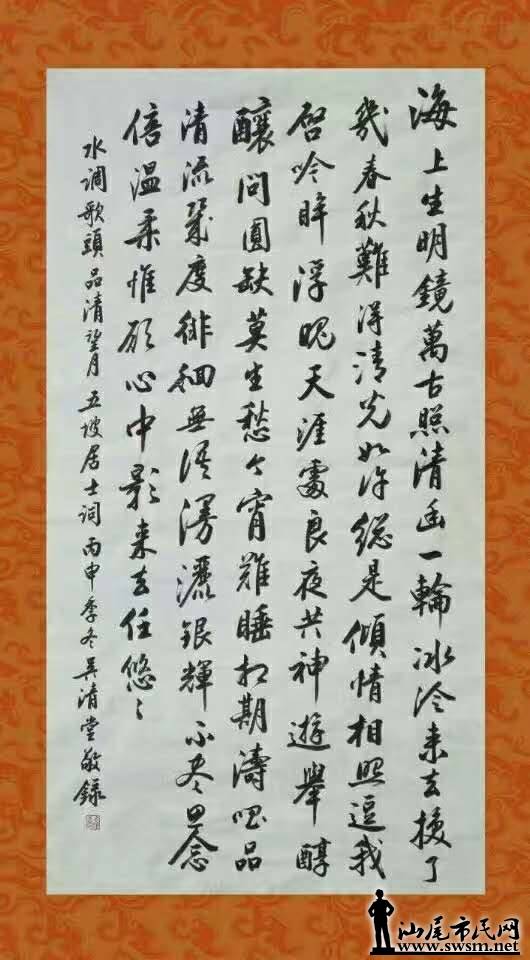 海上生明鏡萬古照清幽一輪冰冷来去換了
幾春秋難得清光如许總是傾情相照逗我
啓吟眸浮晚天涯處良夜共神遊舉醇
釀問圓缺莫生愁今宵難睡相期濤
品清流幾度徘徊無语漫灑銀輝不盡思念
倍温柔惟願心中影来去任悠〻
水调歌頭品清望月五坡居士詞丙申季冬吴清堂敬錄
汕尾市民网
www.swsm.net